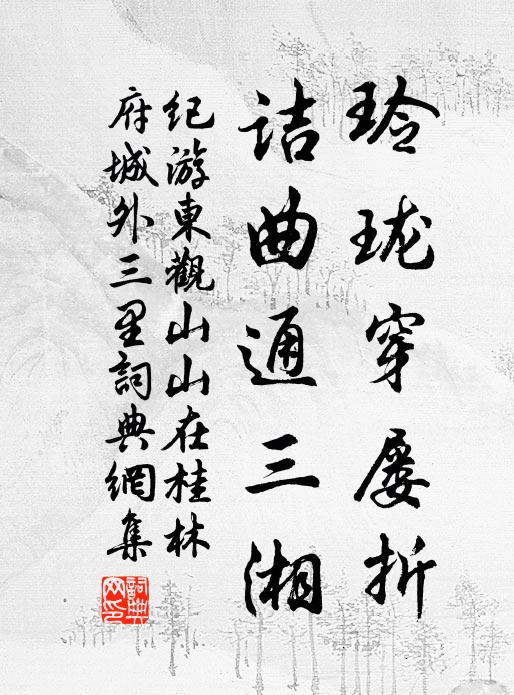 玲珑穿屡折
诘曲通三湘
纪游東觀山山在桂林
府城外三里詞典網集